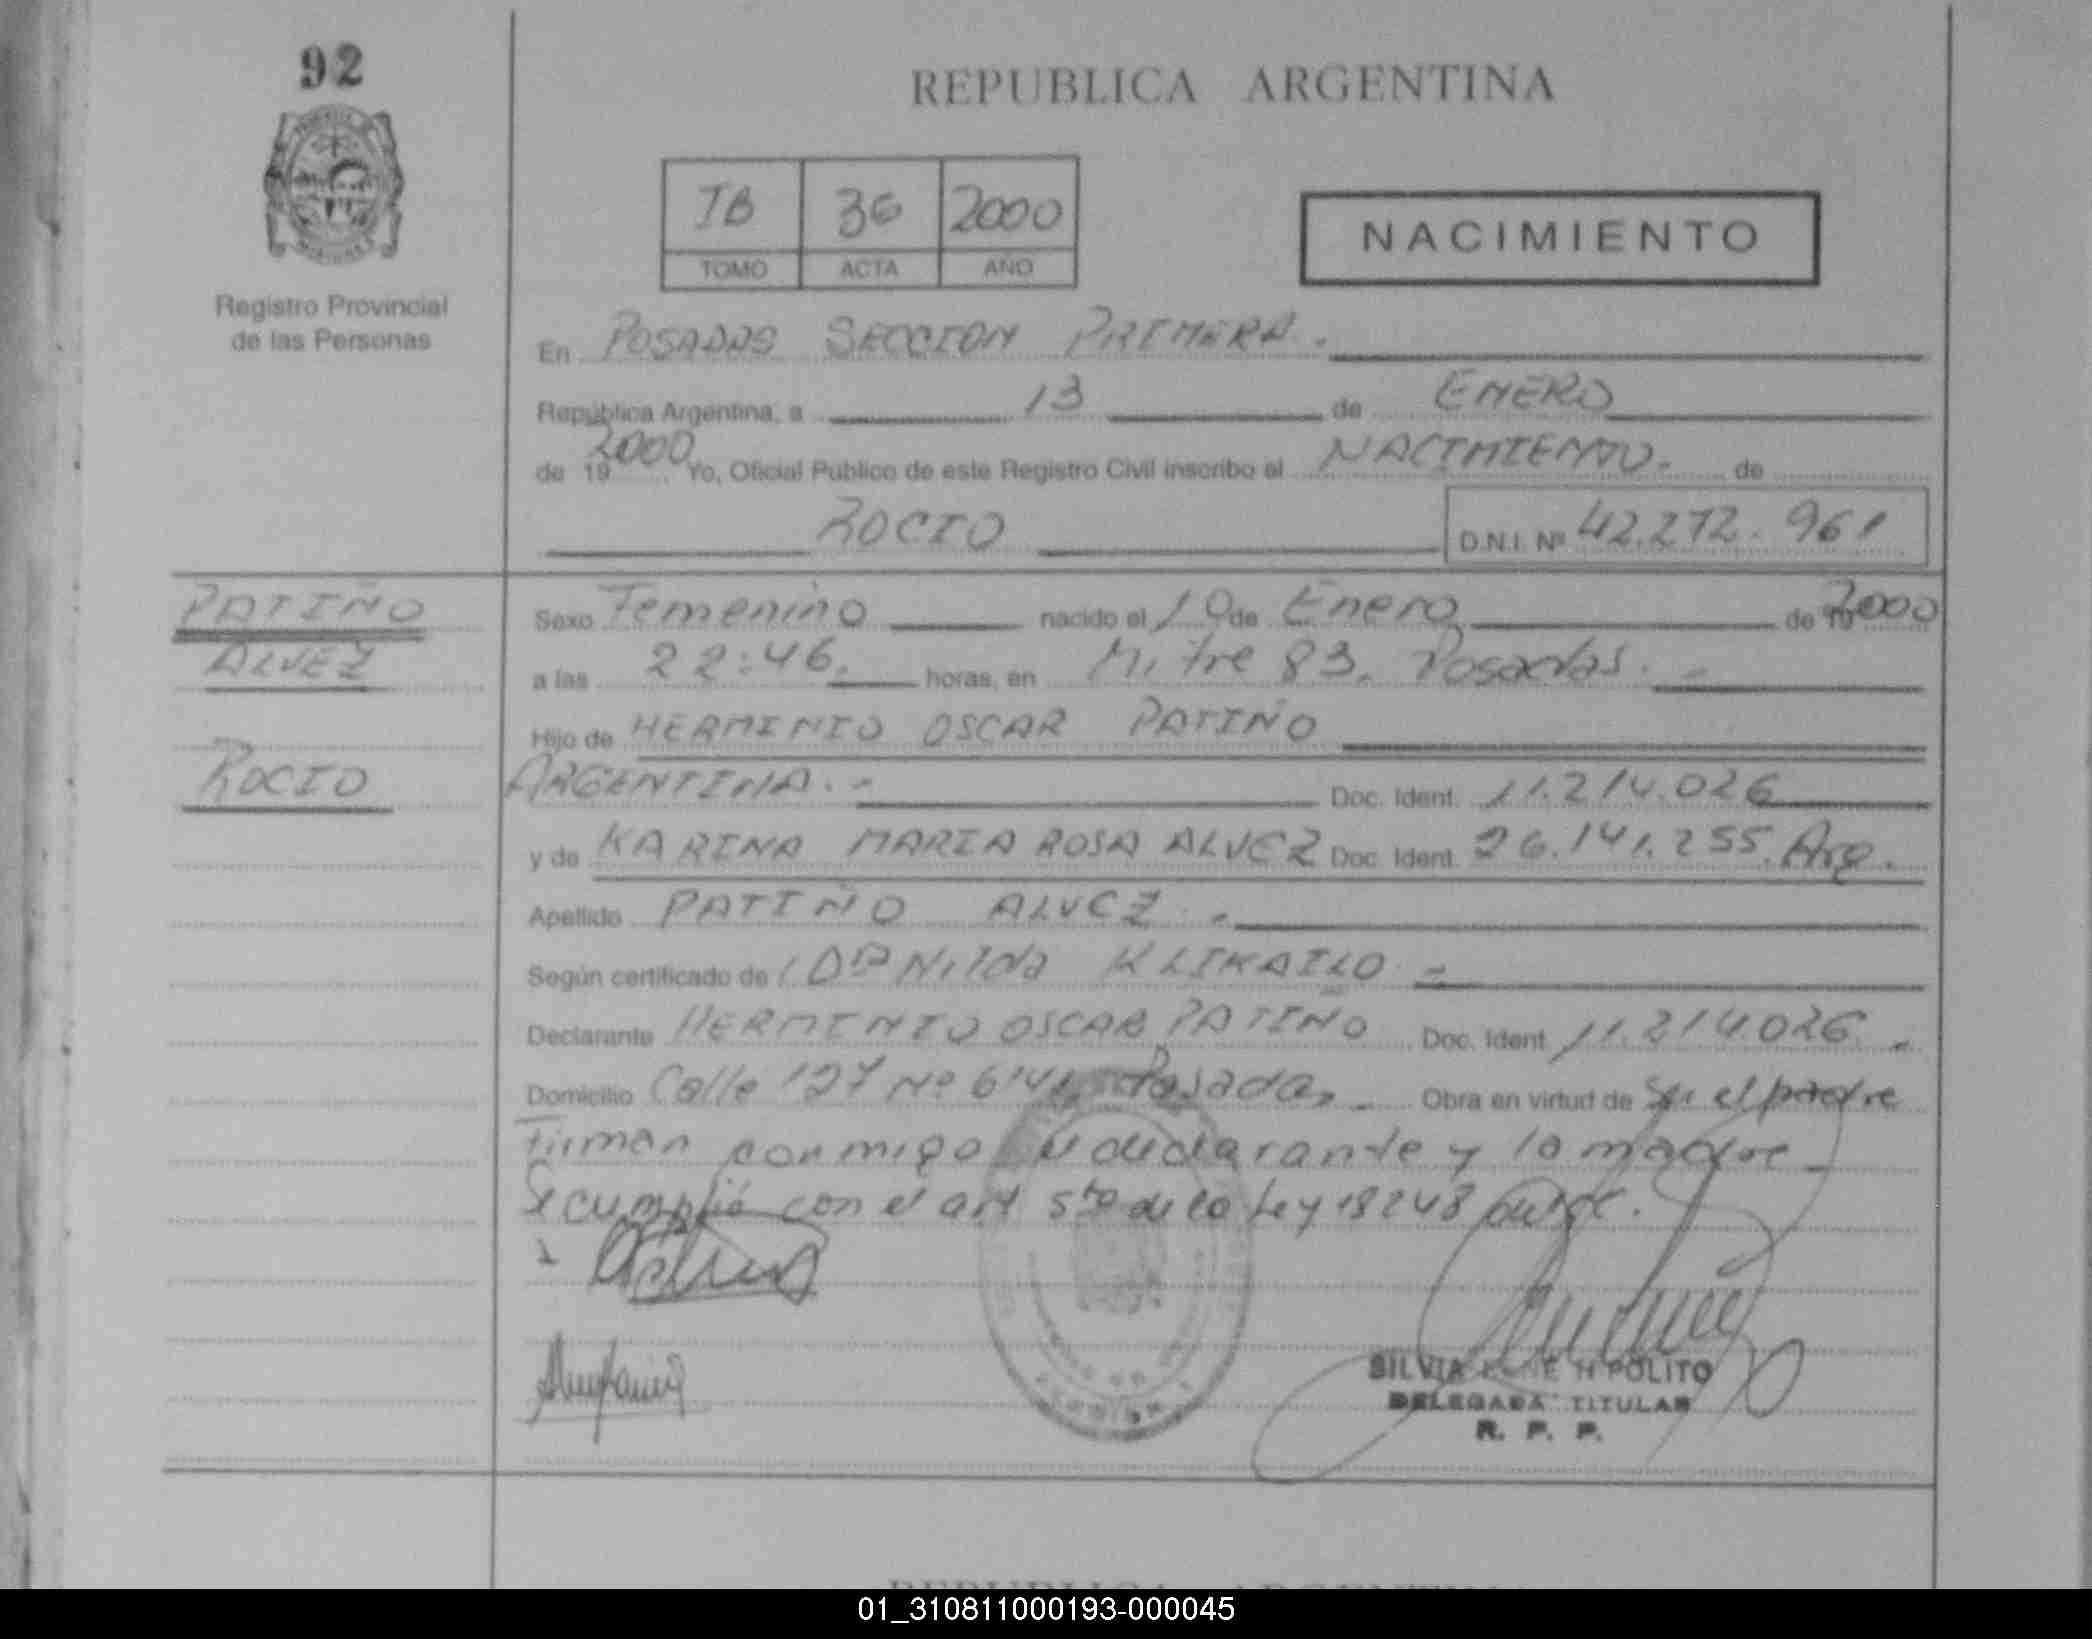 92
REPUBLICA ARGENTINA
TB 36 2000
TOMO ACTA AÑO
NACIMIENTO
Registro Provincial
de las Personas
En POSADAS SECCION PRIMERA.
República Argentina, a 13 de ENERO
de 19 2000 Yo, Oficial Público de este Registro Civil inscribo el NACIMIENTO. de
ROCIO D.N.I. Nº 42.272.961
PATIÑO
ALVEZ
ROCIO
Sexo Femenino nacido el 10 de Enero de 19 2000
a las 22:46. horas, en Mitre 83. Posadas.-
Hijo de HERMINIO OSCAR PATIÑO
ARGENTINA.- Doc. Ident. 11.214.026
y de KARINA MARIA ROSA ALVEZ Doc. Ident. 26.141.255. Arg.
Apellido PATIÑO ALVEZ.-
Según certificado de Dra Nilda KLIKAILO-
Declarante HERMINIO OSCAR PATIÑO Doc. Ident. 11.214.026.-
Domicilio Calle 127 Nº Posadas- Obra en virtud de Ser el padre
Firman conmigo el declarante y la madre-
Se cumplió con el art 5to de la Ley 18248
SILVIA H POLITO
DELEGADA TITULAR
R. P. P.
01_310811000193-000045